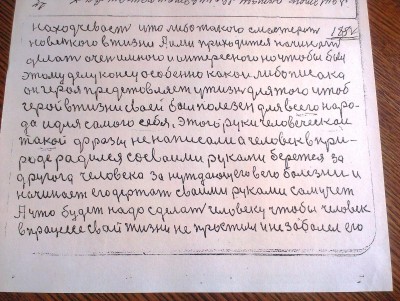 находчевает что либо такого смотерит
188
новенького в жизни Аили приходится начинает
делать очен много и интересного но чтобы бы
этому делу конец особенно какой либо писака
он героя предстовляет у жизни для того чтоб
герой в жизни своей был полезен для всего наро-
да и для самого себя, Этого руки человеческой
такой фразы не написали а человек в при-
роде родился со своими руками берется за
другога человека за нуждающего в его болезни и
начинает его держат своими руками самучет
А что будет надо сделат человеку чтобы человек
в працесе свой жизни не простыл и не заболел его